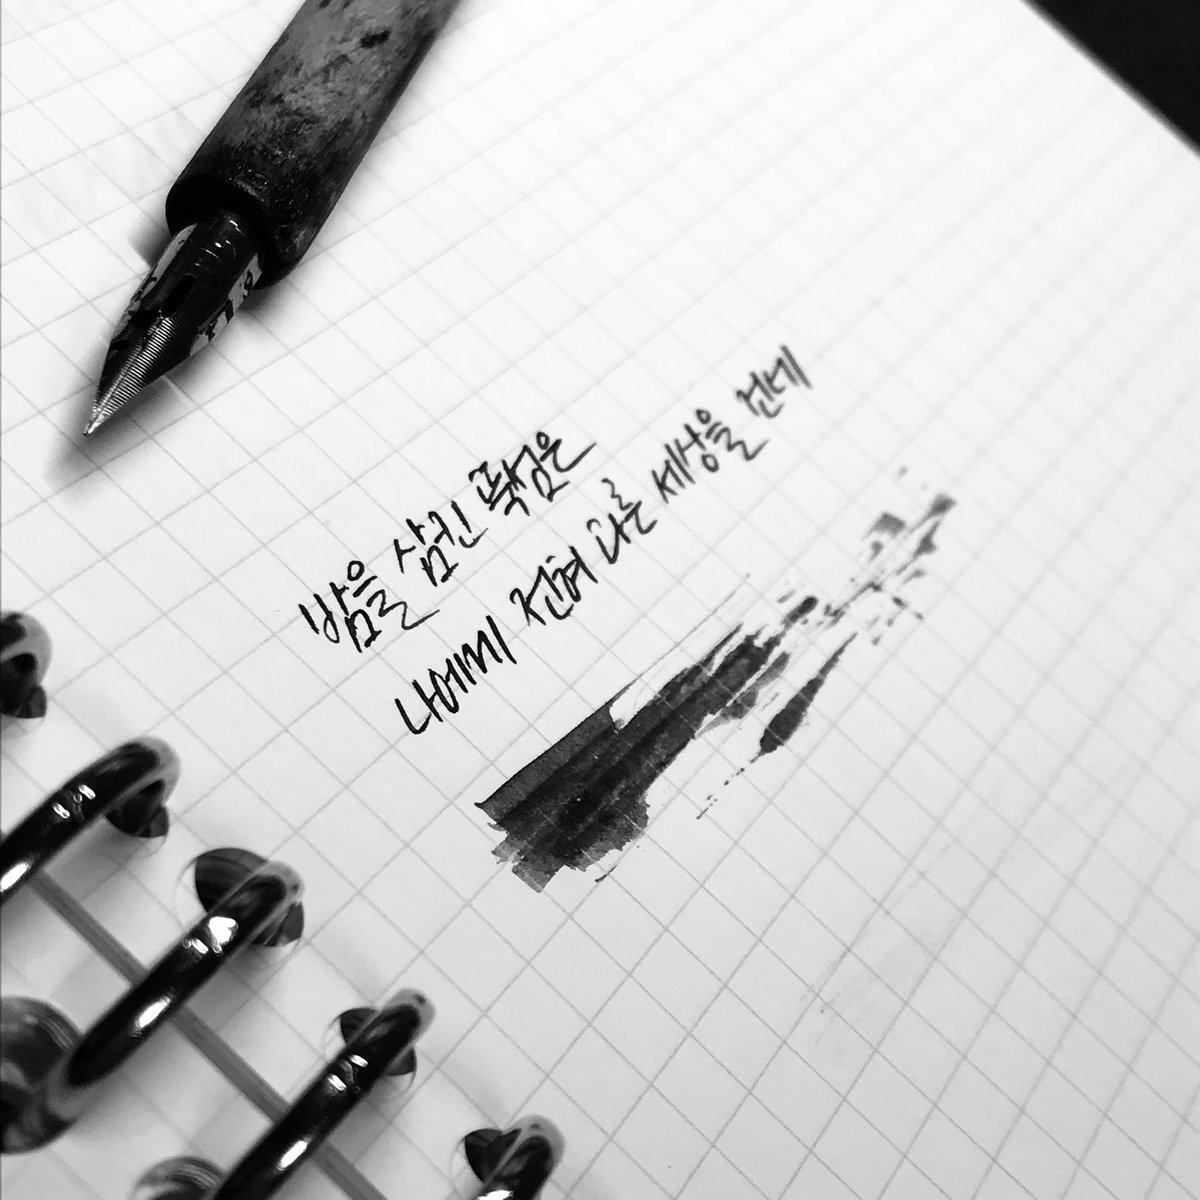 밤을 삼킨 뙈섬은
나에게 전혀 다른 세상을 건네